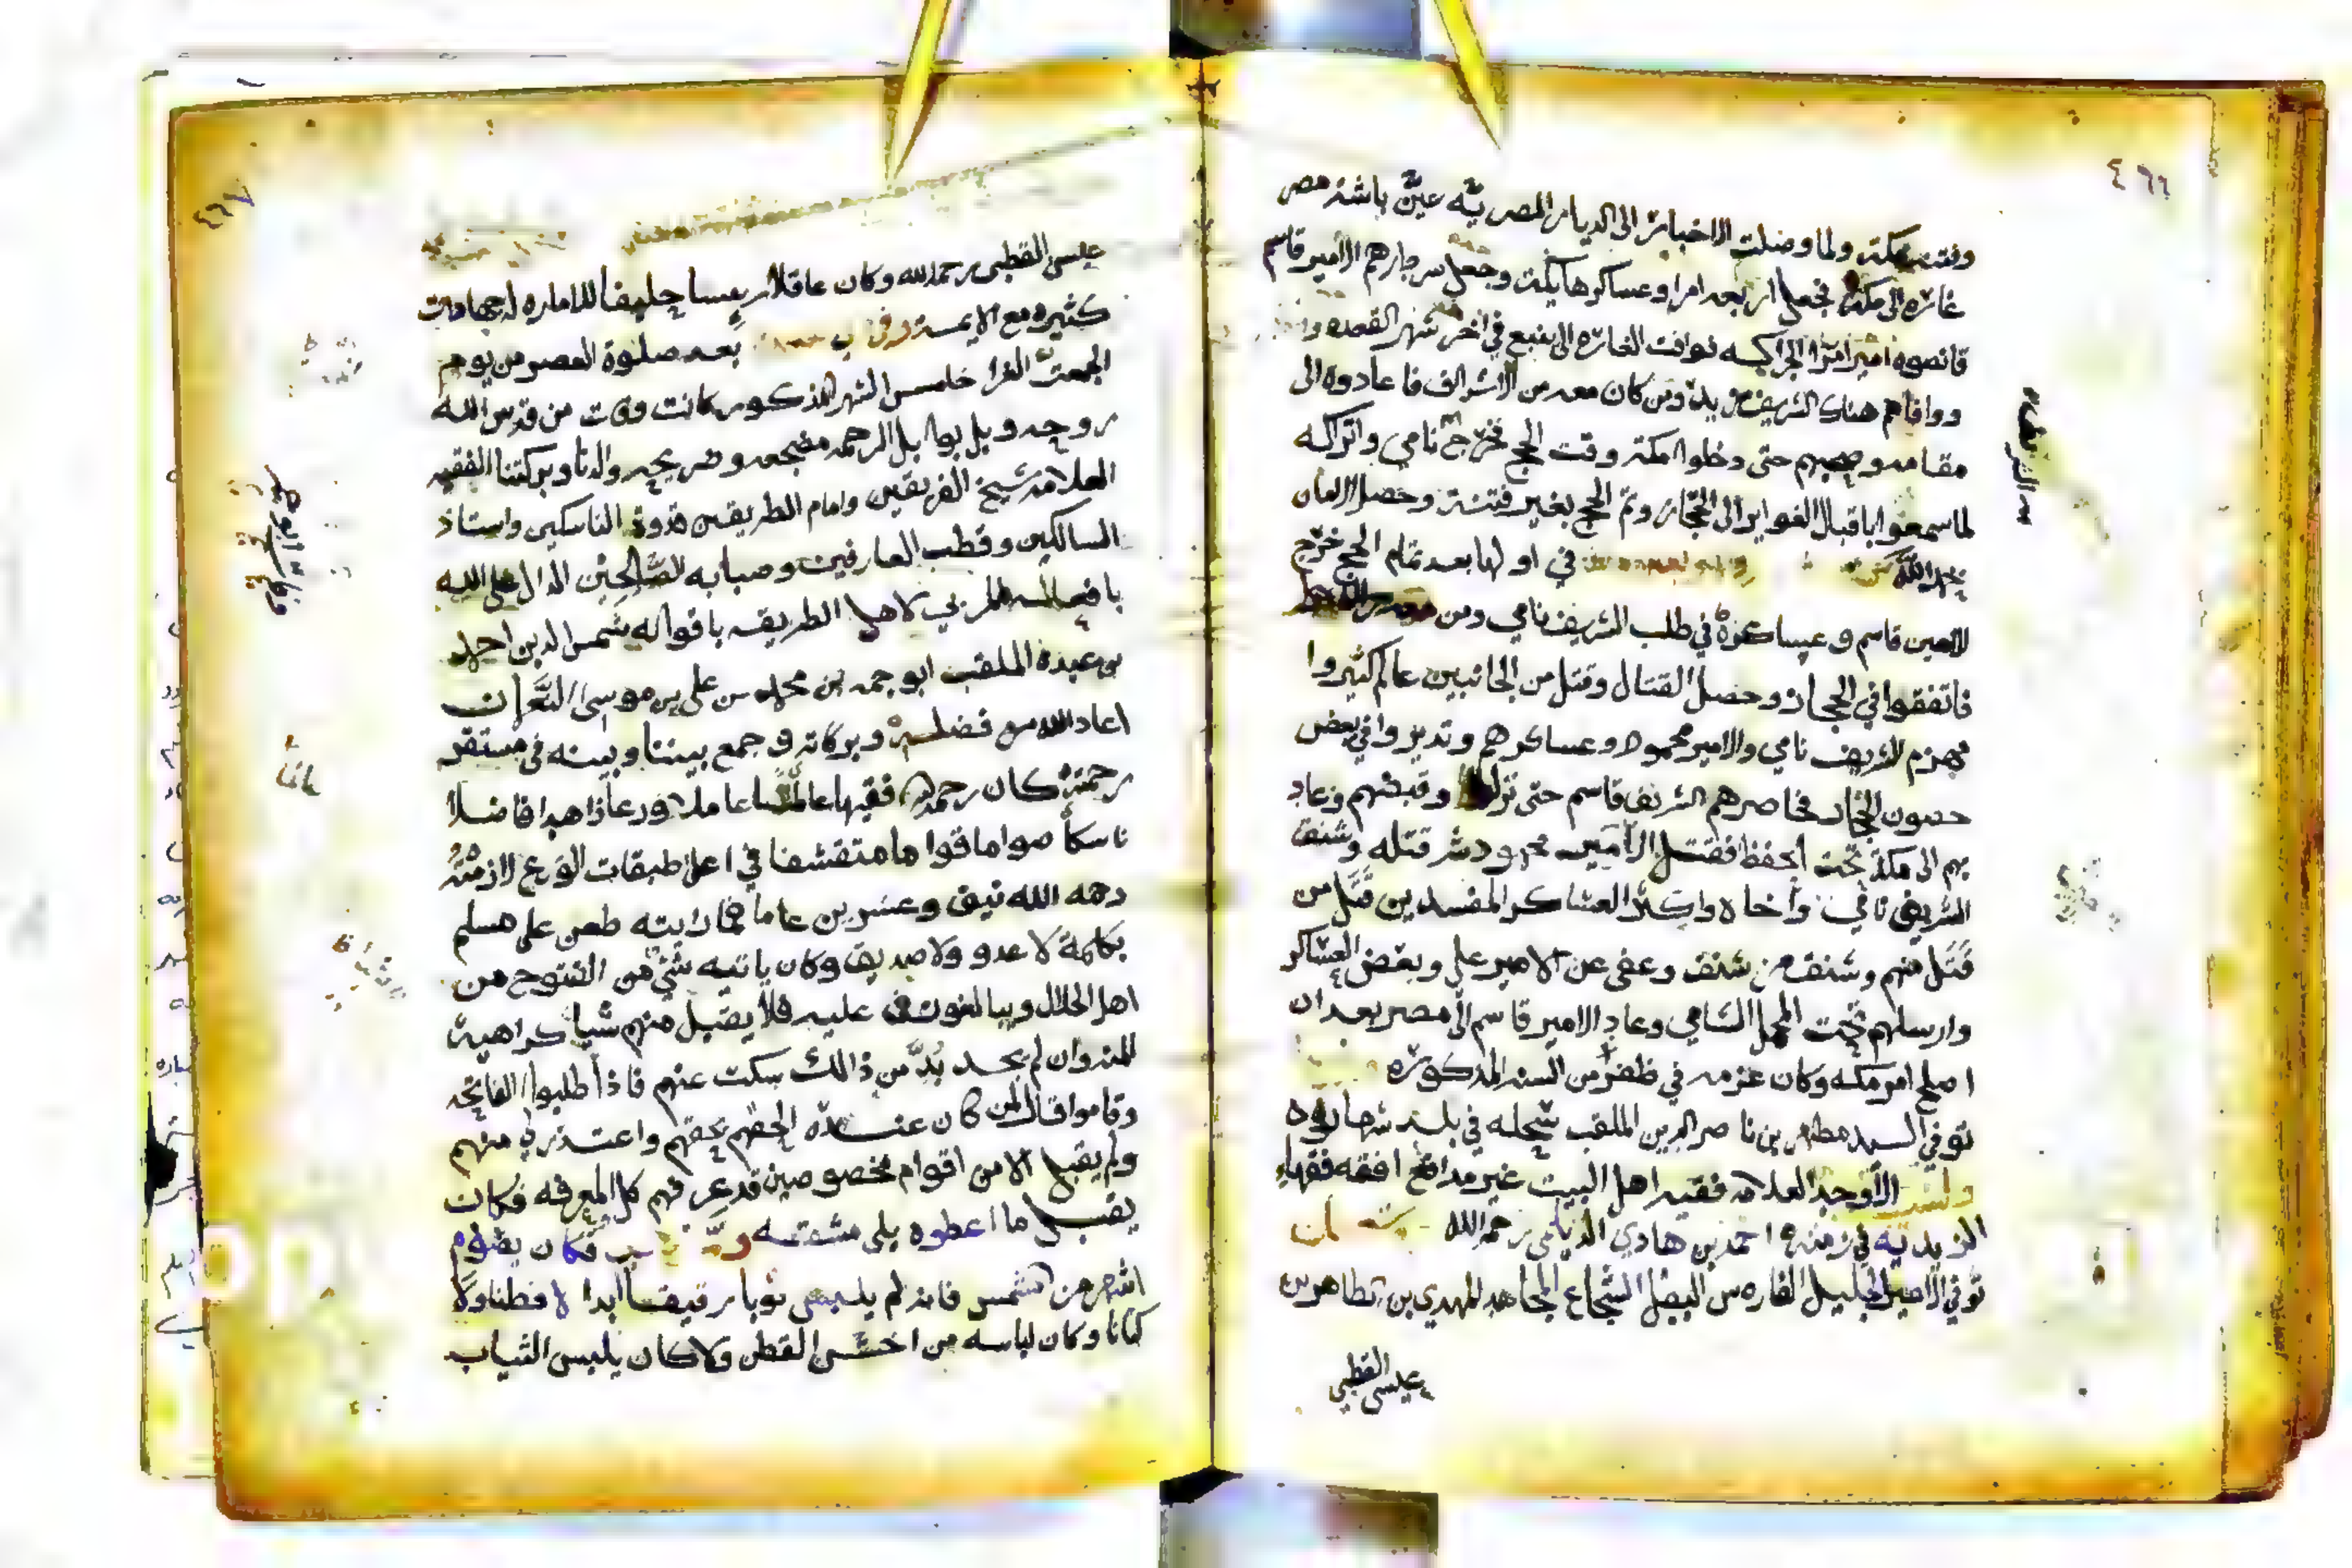 ٤٦٦
وفتنت بمكة ولما وصلت الاخبار الى الديار المصرية عين باشة مصر
غارة الى مكة فجعل اربعة امرا وعساكرها يكة وجعل سردارهم الامير قاسم
قانصوه امير امرا الجراكسه فوافت الغاره الى ينبع في اخر شهر القعده
ووافاهم هناك الشريف زيد ومن كان معه من الاشراف فاعادوه الى
مقامه وصحبهم حتى دخلوا مكة وقت الحج فخرج نامي واتراكه
لما سمعوا باقبال الغواير الى الحجاز وتم الحج بغير فتنة وحصل الامان
بحمد الله في اولها بعد تمام الحج خرج
الامير قاسم وعساكره في طلب الشريف نامي ومن
فاتفقوا في الحجاز وحصل القتال وقتل من الجانبين عالم كثيروا
فهزم الشريف نامي والامير محمود وعساكرهم وتديروا في بعض
حصون الحجاز فحاصرهم الشريف قاسم حتى نزلوا وقبضهم وعاد
بهم الى مكة تحت الحفظ فقتل الامير محمود شر قتله وشنق
الشريف نامي واخاه واكثر العساكر المفسدين قتل من
قتل منهم وشنق من شنق وعفى عن الامير علي وبعض العساكر
وارسلهم تحت المحمل الشامي وعاد الامير قاسم الى مصر بعد ان
اصلح امر مكه وكان عزمه في ظفر من السنه المذكوره
توفي السيد مطهر بن ناصر الدين الملقب شجله في بلد شهاره
الاوحد العلامه فقيه اهل البيت غير مدافع افقه فقهاء
الزيديه في زمنه احمد بن هادي الديلمي رحمه الله
توفي الامير الجليل الفارس البطل الشجاع المجاهد المهدي بن طاهر بن
عيسى القطبي
٤٦٧
عيسى القطبي رحمه الله وكان عاقلا رييسا حليفا للاماره له جهامات
كثيره مع الايمه وفي بعد صلوة العصر من يوم
الجمعة الغرا خامس الشهر المذكور كانت وفات من قدس الله
روحه وبل بوابل الرحمه مضجعه وضريحه والدنا وبركتنا الفقيه
العلامه شيخ الفريقين وامام الطريقين قدوة الناسكين واستاذ
السالكين وقطب العارفين وصبابه الصالحين الدال على الله
بافعاله المربي لاهل الطريقه باقواله شمس الدين احمد
بن عبده الملقب ابو جمه بن محمد بن علي بن موسى النعمان
اعاد الله من فضله وبركاته وجمع بيننا وبينه في مستقر
رحمته كان رحمه الله فقيها عالما عاملا ورعا زاهدا فاضلا
ناسكا صواما قواما متقشفا في اعلى طبقات الورع لازمته
رحمه الله نيف وعشرين عاما فما رايته طعن على مسلم
بكلمة لا عدو ولا صديق وكان ياتيه شي من الفتوح من
اهل الحلال ويبالغون عليه فلا يقبل منهم شيا كراهية
للمنه وان لم يجد بد من ذالك سكت عنهم فاذا طلبوا الفاتحه
وقاموا قال لمن كان عنده الحقهم بحقهم واعتذر لي منهم
ولم يقبل الا من اقوام مخصوصين قد عرفهم كل المعرفه فكان
يقبل ما اعطوه على مشقه فكان يقوم
اشهر من الشمس فانه لم يلبس ثوبا رقيقا ابدا لا قطنا ولا
كتانا وكان لباسه من اخشن القطن ولا كان يلبس الثياب